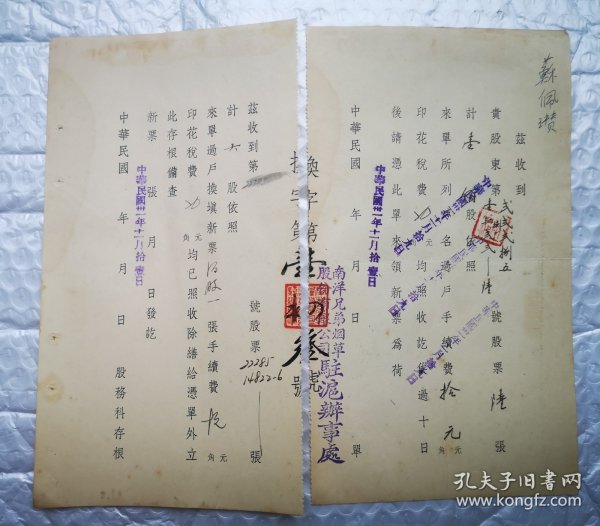 蘇佩瓚
茲收到
貴股東第
號股票 陸 張
計 壹 股依照
來單所列 名過戶手續費 拾 元
印花稅費 元 均照收訖 過十日
後請憑此單來領新票為荷
中華民國卅一年十一月拾壹日
中華民國 年 月 日 單
南洋兄弟烟草
股份有限公司駐滬辦事處
換字第壹 叁號
茲收到第 號股票 張
22285
14822-6
計 股依照
來單過戶換填新票 一 張手續費 元角
印花稅費 元角 均已照收除繕給憑單外立
此存根備查
新票 張 月 日發訖
中華民國卅一年十一月拾壹日
中華民國 年 月 日 股務科存根
孔夫子旧书网
www.kongfz.com